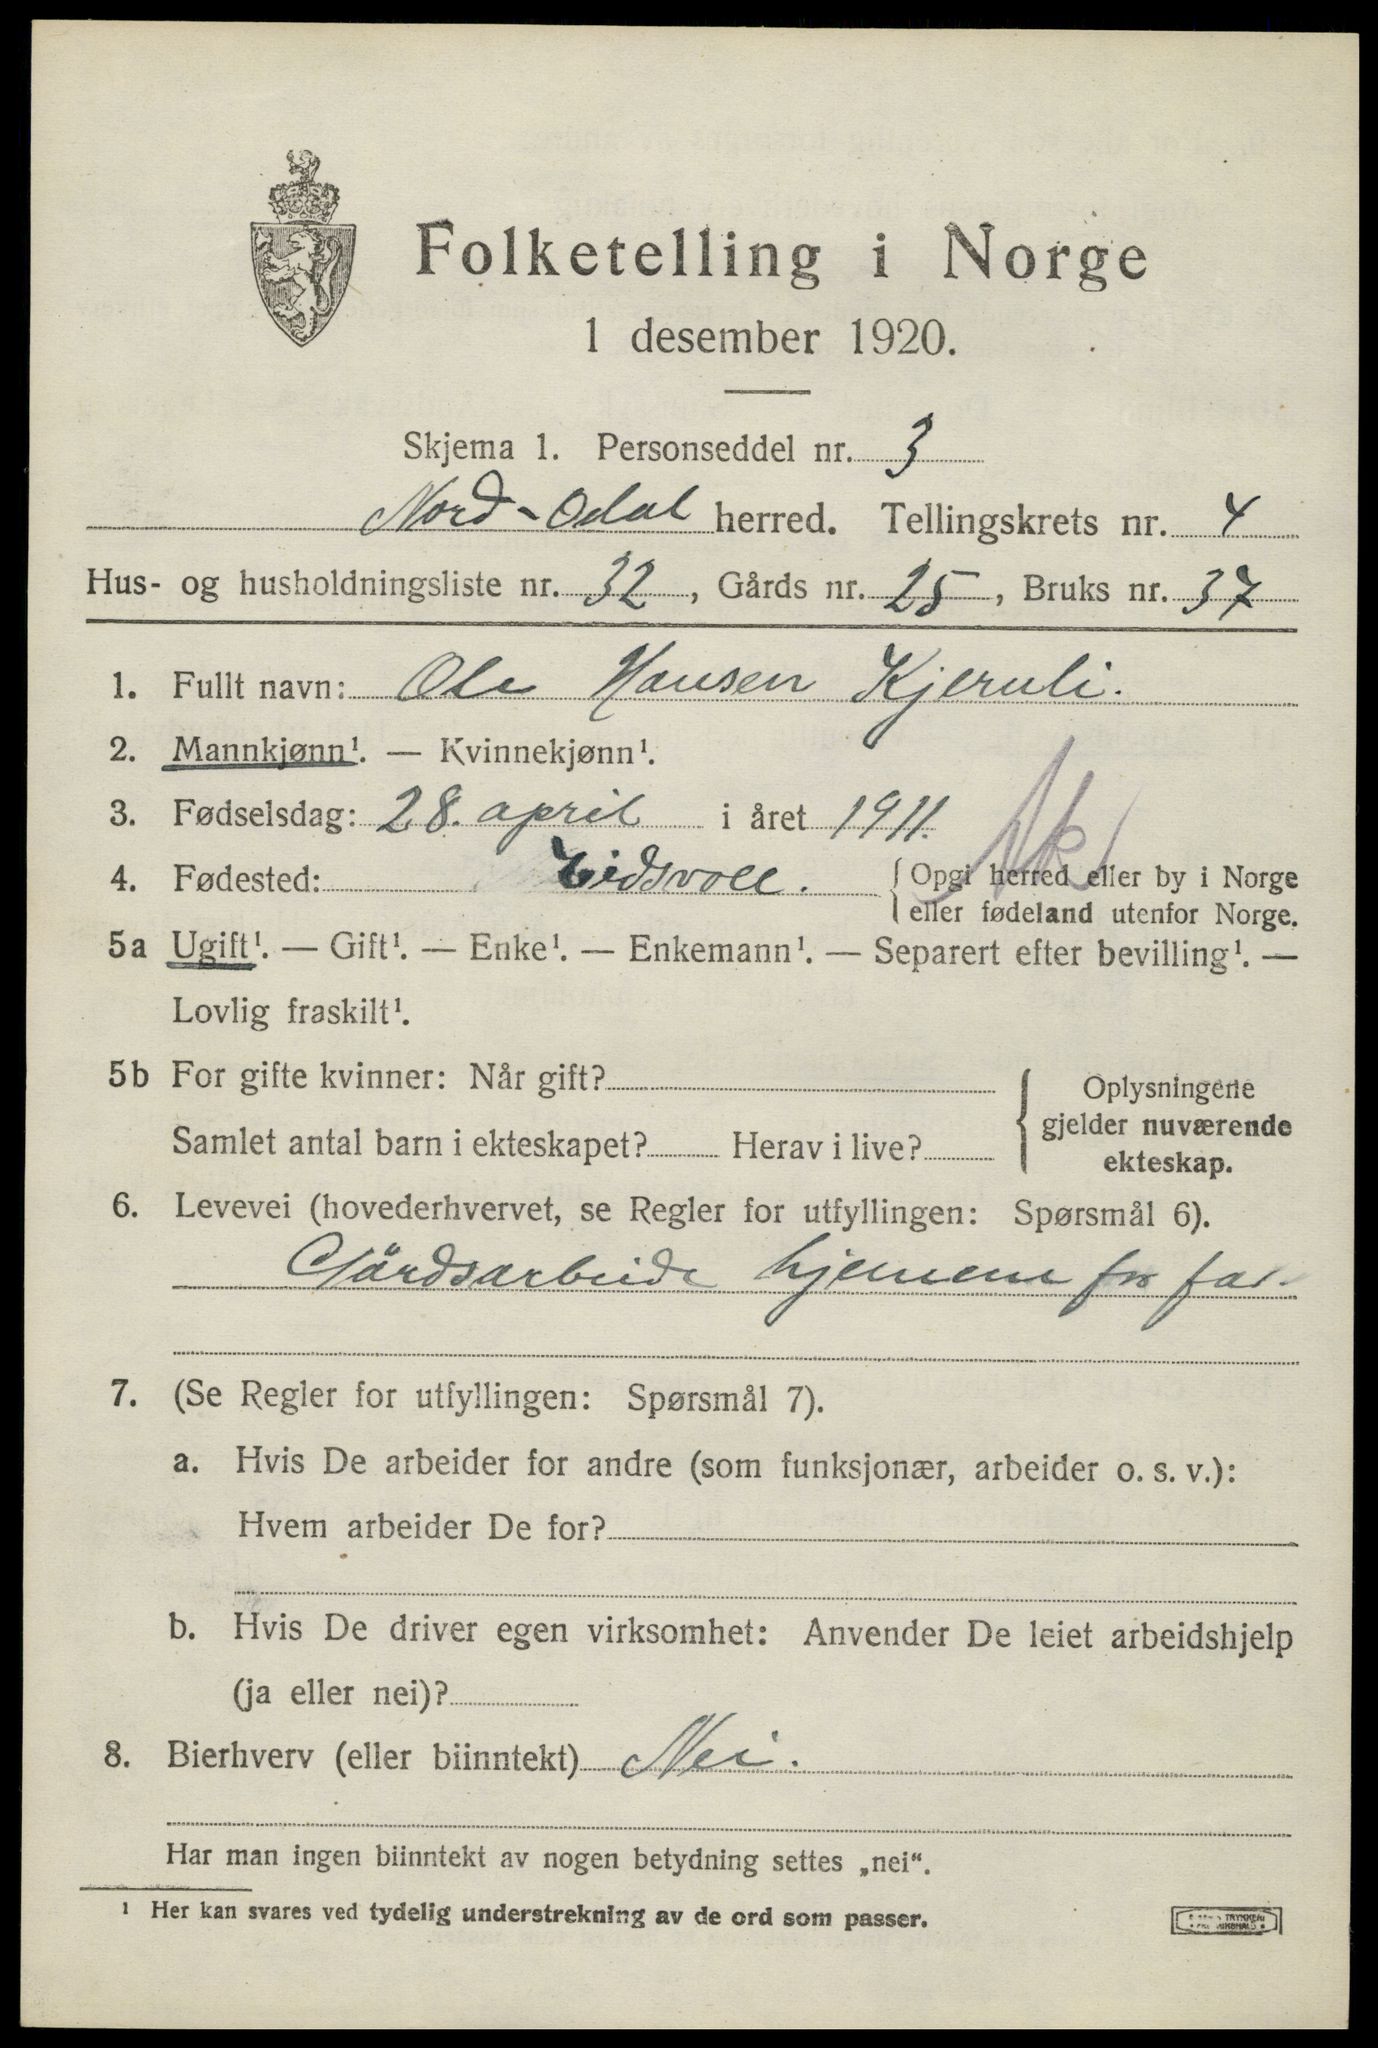 Folketelling i Norge
1 desember 1920.
Skjema 1. Personseddel nr. 3
Nord-Odal herred. Tellingskrets nr. 4
Hus- og husholdningsliste nr. 32, Gårds nr. 25, Bruks nr. 37
1. Fullt navn: Ole Hansen Kjeruli.
2. Mannkjønn¹. — Kvinnekjønn¹.
3. Fødselsdag: 28. april i året 1911.
4. Fødested: Eidsvoll. Opgi herred eller by i Norge
eller fødeland utenfor Norge.
Ak
5a Ugift¹. — Gift¹. — Enke¹. — Enkemann¹. — Separert efter bevilling¹. —
Lovlig fraskilt¹.
5b For gifte kvinner: Når gift?
Samlet antal barn i ekteskapet? Herav i live?
Oplysningene
gjelder nuværende
ekteskap.
6. Levevei (hovederhvervet, se Regler for utfyllingen: Spørsmål 6).
Gårdsarbeide hjemme for far
7. (Se Regler for utfyllingen: Spørsmål 7).
a. Hvis De arbeider for andre (som funksjonær, arbeider o. s. v.):
Hvem arbeider De for?
b. Hvis De driver egen virksomhet: Anvender De leiet arbeidshjelp
(ja eller nei)?
8. Bierhverv (eller biinntekt) Nei.
Har man ingen biinntekt av nogen betydning settes „nei“.
¹ Her kan svares ved tydelig understrekning av de ord som passer.